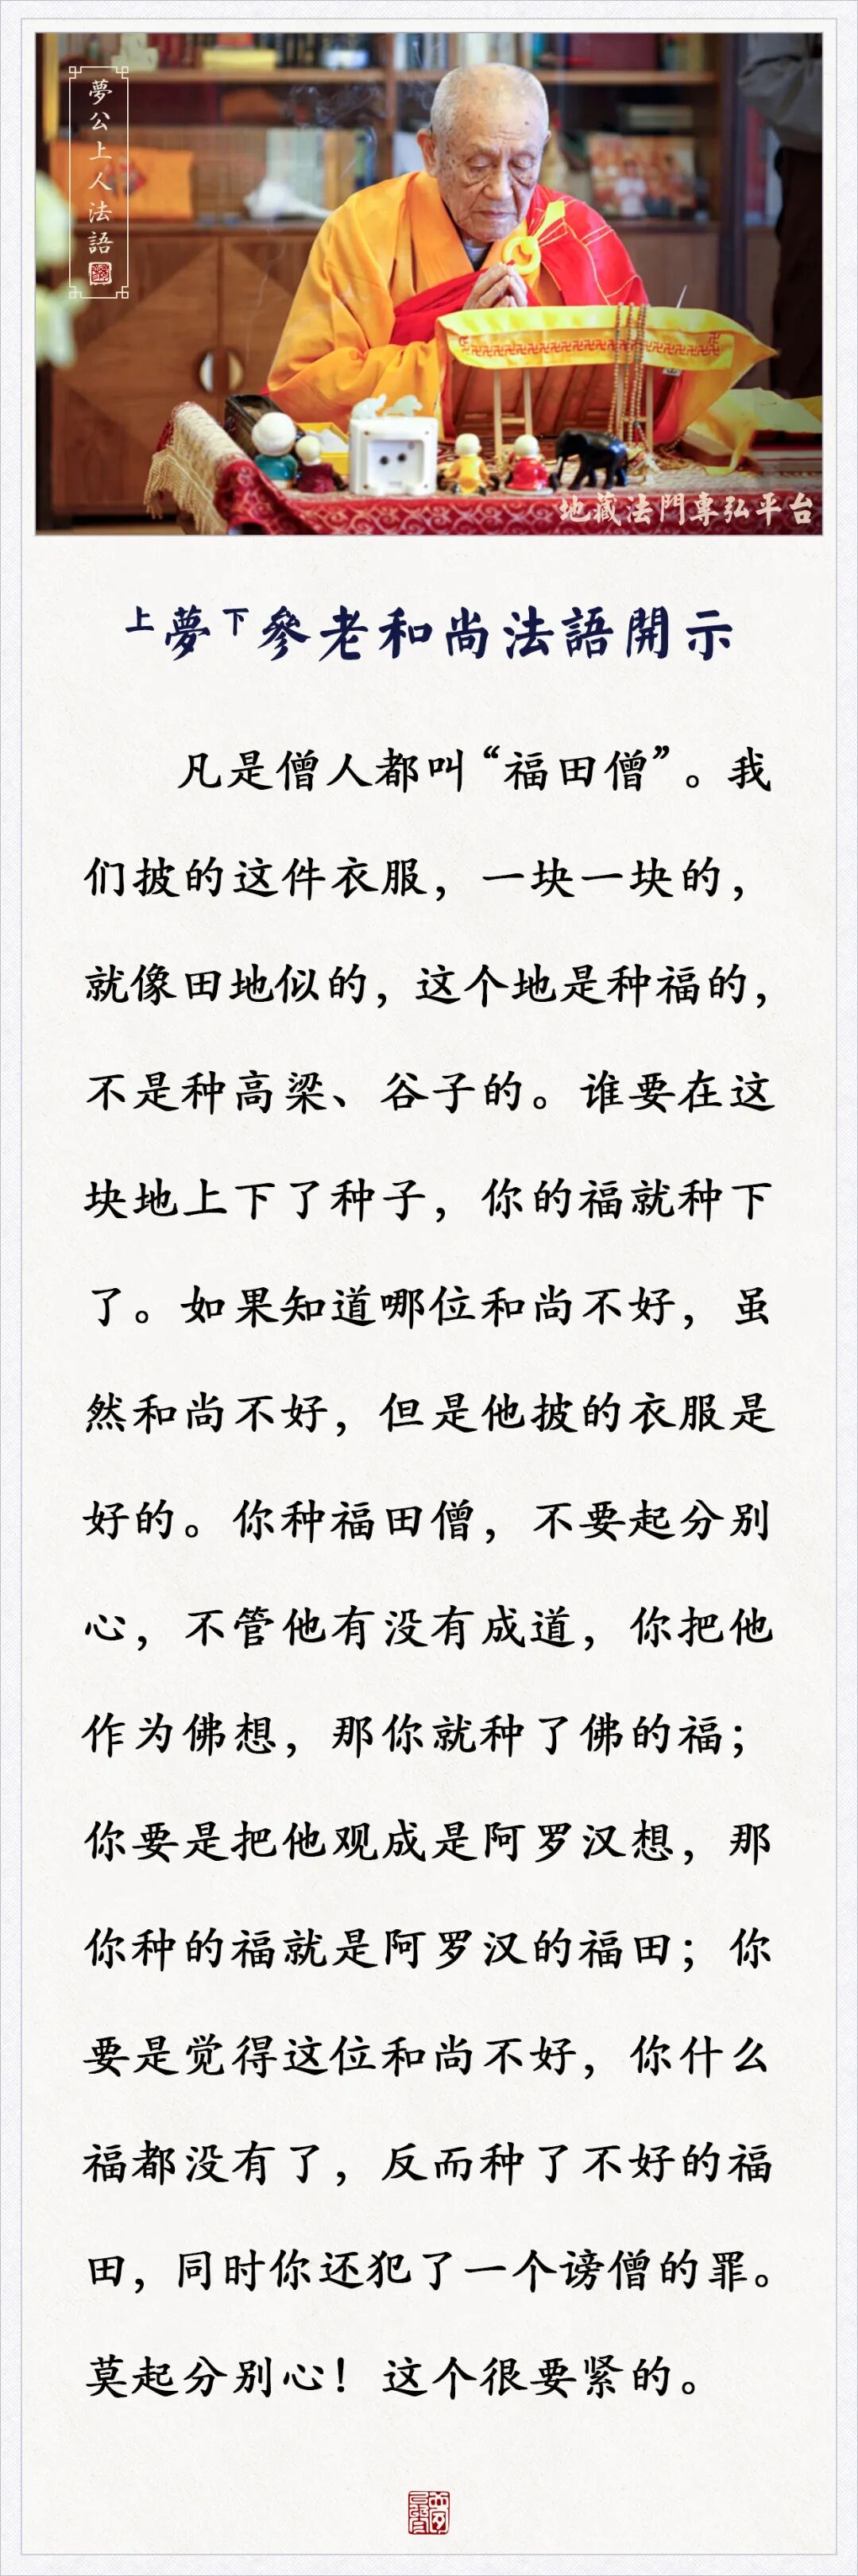 夢公上人法語
地藏法門專弘平台
上夢下參老和尚法語開示
凡是僧人都叫“福田僧”。我
们披的这件衣服，一块一块的，
就像田地似的，这个地是种福的，
不是种高梁、谷子的。谁要在这
块地上下了种子，你的福就种下
了。如果知道哪位和尚不好，虽
然和尚不好，但是他披的衣服是
好的。你种福田僧，不要起分别
心，不管他有没有成道，你把他
作为佛想，那你就种了佛的福；
你要是把他观成是阿罗汉想，那
你种的福就是阿罗汉的福田；你
要是觉得这位和尚不好，你什么
福都没有了，反而种了不好的福
田，同时你还犯了一个谤僧的罪。
莫起分别心！这个很要紧的。